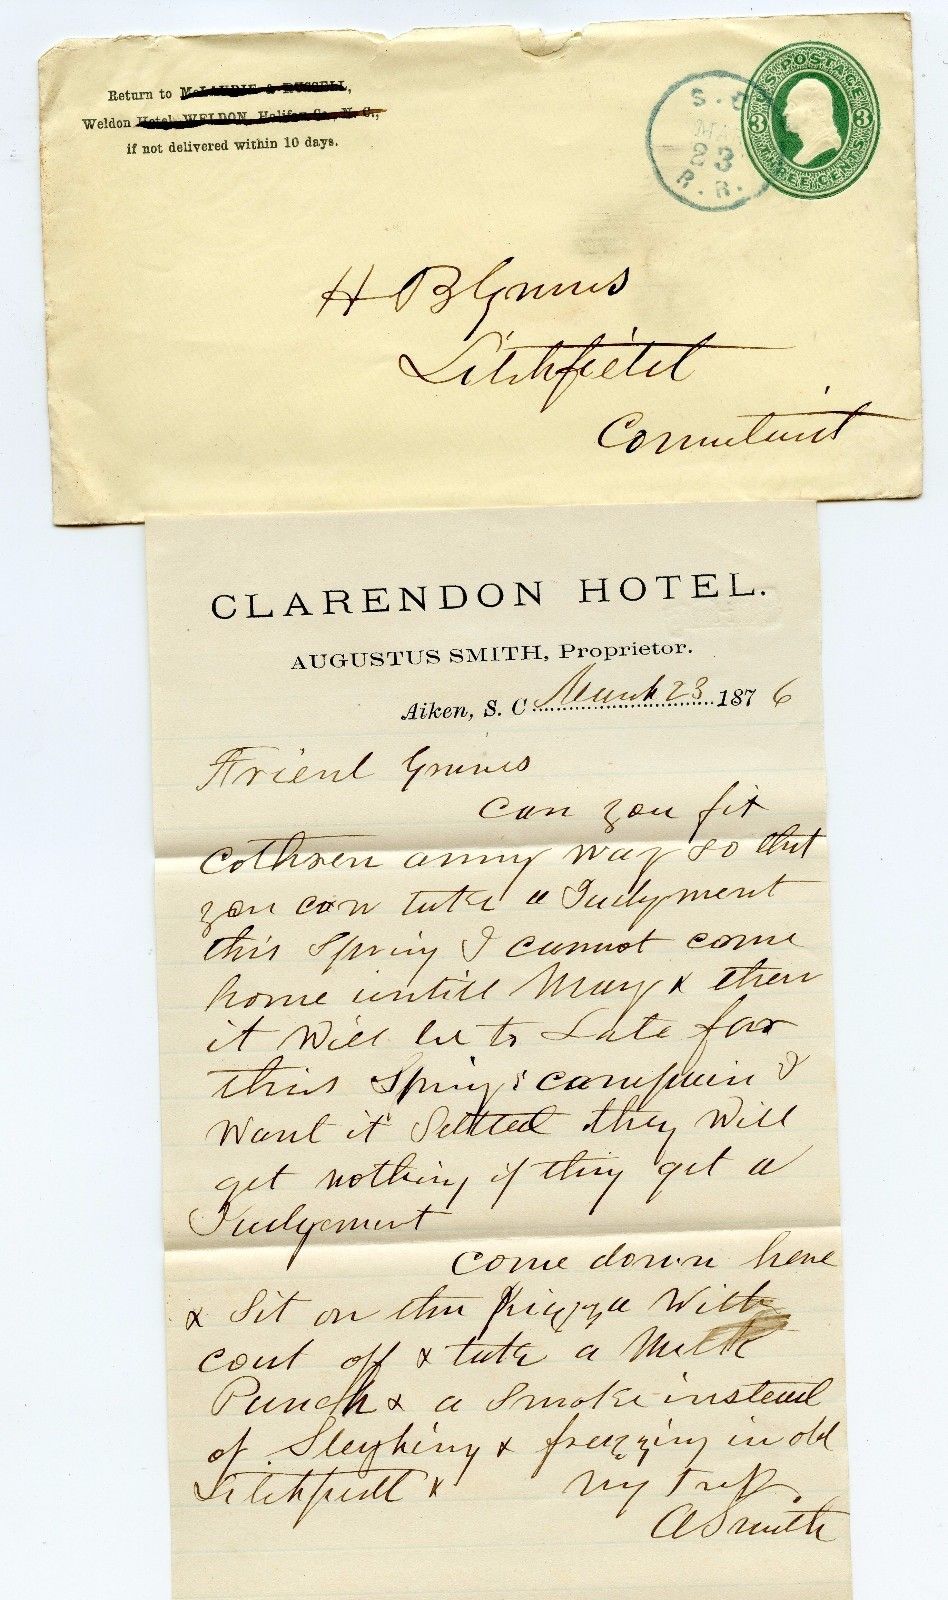 Return to McLAURIE & RUSSELL,
Weldon Hotel, WELDON, Halifax Co., N. C.,
if not delivered within 10 days.
S. C
MA
23
R. R.
U.S. POSTAGE
3 3
THREE CENTS
H B Graves
Litchfield
Connecticut
CLARENDON HOTEL.
AUGUSTUS SMITH, Proprietor.
Aiken, S. C. March 23 1876
Friend Graves
Can you fix
Cothren anny way so that
you can take a Judgment
this Spring I cannot come
home untill May & then
it Will be to Late for
this Spring campain I
Want it Settled they Will
get nothing if they get a
Judgement
Come down here
& Sit on the Piazza With
coat off & take a Milk
Punch & a Smoke instead
of Sleighing & freezzing in old
Litchfield &
A Smith